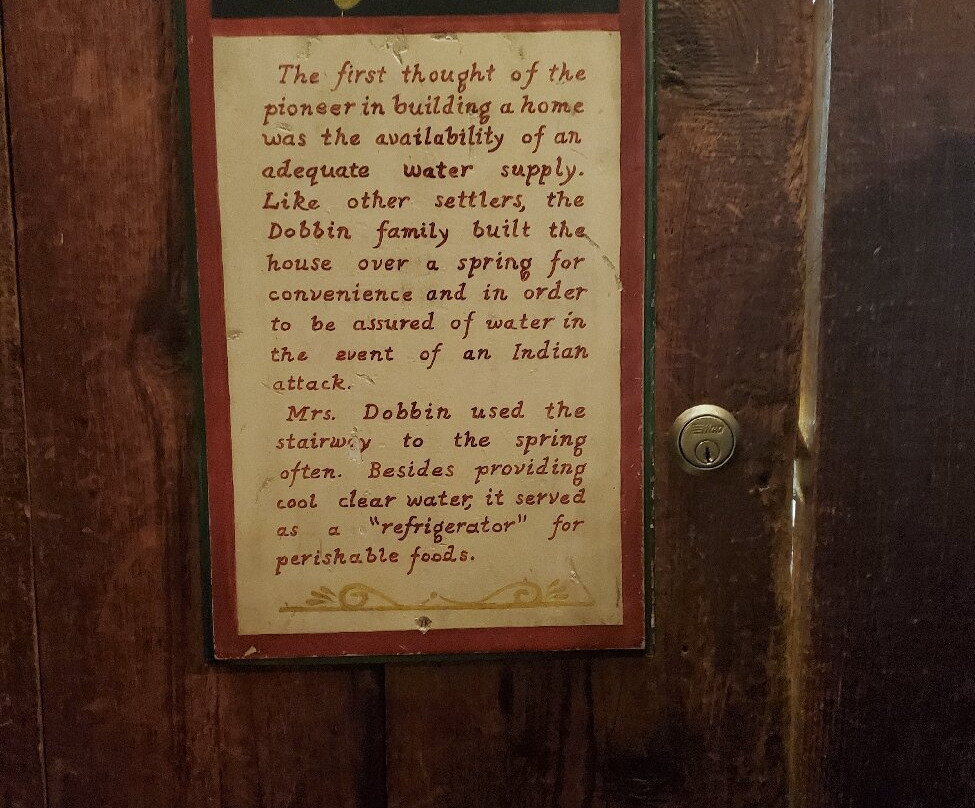 The first thought of the
pioneer in building a home
was the availability of an
adequate water supply.
Like other settlers, the
Dobbin family built the
house over a spring for
convenience and in order
to be assured of water in
the event of an Indian
attack.
Mrs. Dobbin used the
stairway to the spring
often. Besides providing
cool clear water, it served
as a "refrigerator" for
perishable foods.